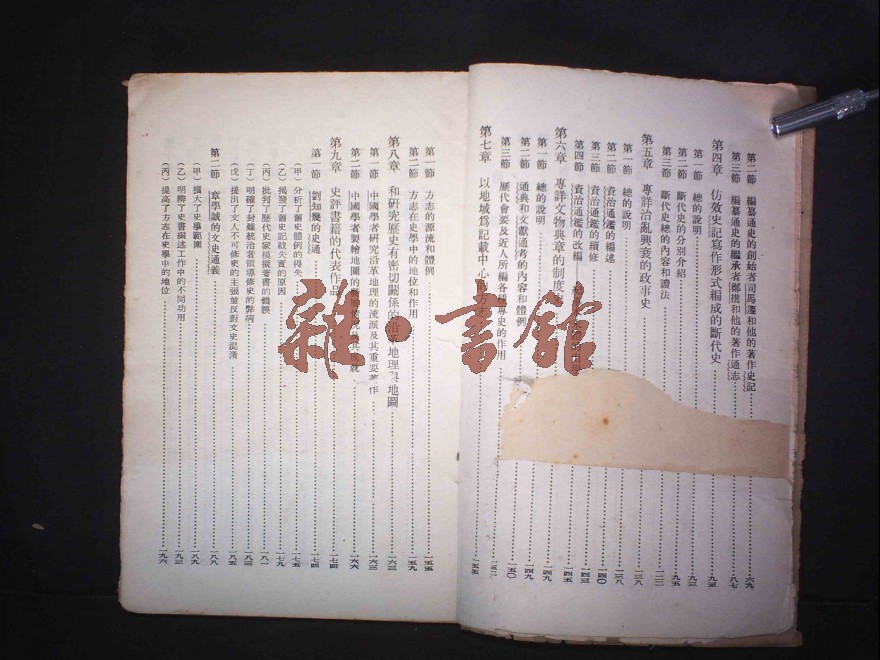 第二節 編纂通史的創始者司馬遷和他的著作史記 六九
第三節 編纂通史的繼承者鄭樵和他的著作通志 八七
第四章 仿效史記寫作形式編成的斷代史 九三
第一節 總的說明 九三
第二節 斷代史的分別介紹 九五
第三節 斷代史總的內容和讀法
第五章 專詳治亂興衰的政事史 一三八
第一節 總的說明 一三八
第二節 資治通鑑的編述 一四〇
第三節 資治通鑑的續修 一四三
第四節 資治通鑑的改編 一四五
第六章 專詳文物典章的制度 一四九
第一節 總的說明 一四九
第二節 通典和文獻通考的內容和體例 一五〇
第三節 歷代會要及近人所編各種專史的作用
第七章 以地域爲記載中心的方志 一五五
第一節 方志的源流和體例 一五五
第二節 方志在史學中的地位和作用 一五九
第八章 和研究歷史有密切關係的沿革地理與地圖 一六三
第一節 中國學者研究沿革地理的流派及其重要著作 一六三
第二節 中國學者製繪地圖的 一六六
第九章 史評書籍的代表作品 一七四
第一節 劉知幾的史通 一七四
(甲) 分析了舊史體例的得失 一七五
(乙) 揭發了舊史記載失實的原因 一七九
(丙) 批判了歷代史家模擬著書的錯誤 一八一
(丁) 明確了封建統治者領導修史的弊病 一八三
(戊) 提出了文人不可修史的主張並反對文史混淆 一八五
第二節 章學誠的文史通義 一八八
(甲) 擴大了史學範圍 一八九
(乙) 明辨了史書編述工作中的不同功用 一九三
(丙) 提高了方志在史學中的地位 一九六
雜·書館